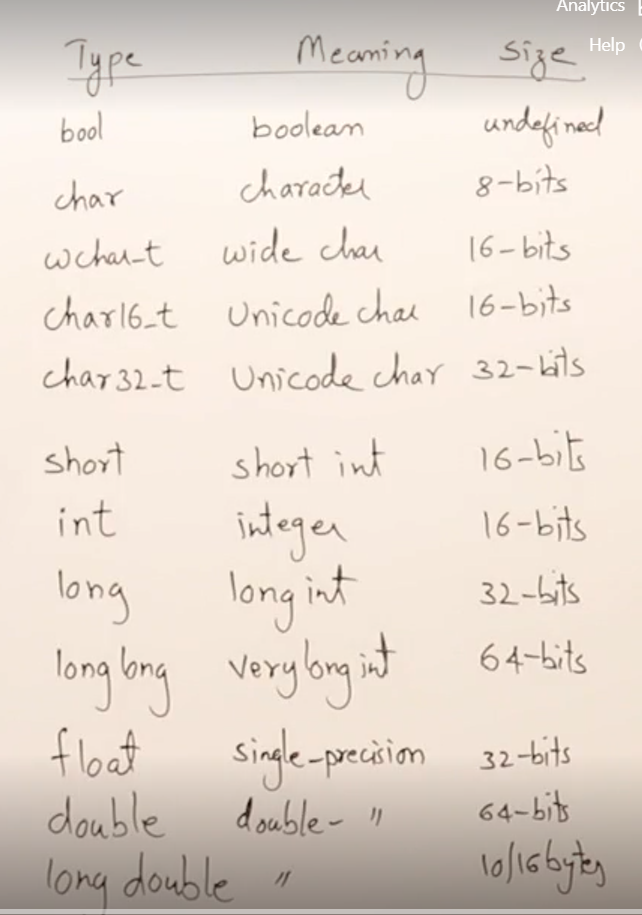 Analytics
Help
Type Meaning Size
bool boolean undefined
char character 8-bits
wchar_t wide char 16-bits
char16_t Unicode char 16-bits
char32_t Unicode char 32-bits
short short int 16-bits
int integer 16-bits
long long int 32-bits
long long very long int 64-bits
float single-precision 32-bits
double double- " 64-bits
long double " 10/16 bytes